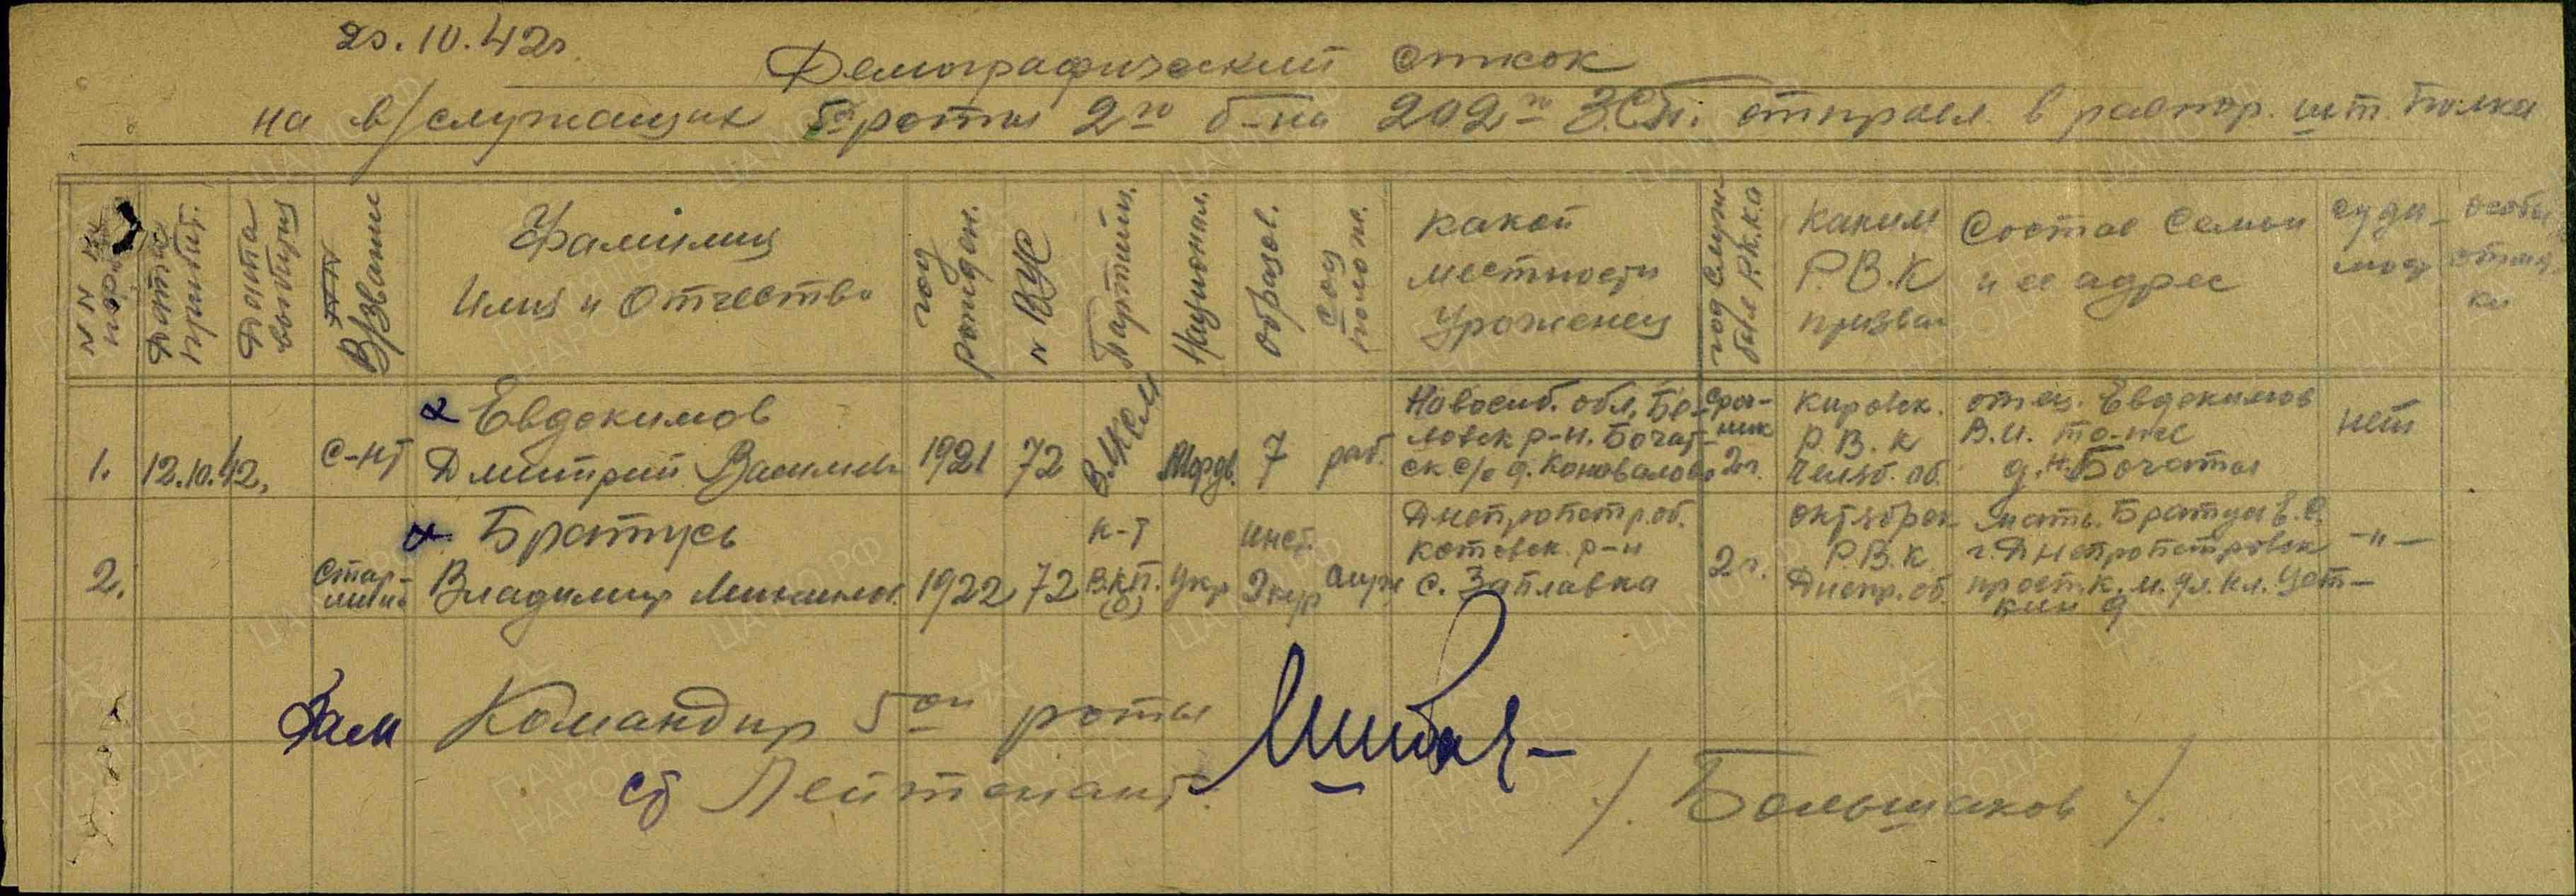 20.10.42г
Демографический список
на в/служащих 5й роты 2го б-на 202го З.С.П. отправл. в распор. шт. Полка
N N пор.
Дата прибыт.
Дата выбытия
В/звание
Фамилия
Имя и Отчество
год рожден.
N ВУС
Партийн.
Национал.
Образов.
Соц полож.
какой
местности
уроженец
год служ-
бы Р.К.К.А
каким
Р.В.К
призван
Состав Семьи
и ее адрес
суди-
мост
особы
отмет-
ки
1. 12.10.42. с-нт
Евдокимов
Дмитрий Васильев
1921 72 В.ЛКСМ Мордв. 7 раб.
Новосиб. обл, Бе-
ловск р-н. Бочат-
ск с/с д. Коновалово
2г.
Кировск.
Р.В.К
Челяб. об.
отец. Евдокимов
В.И. то-же
д. Н. Бочаты
нет
2. Стар-
шина
Братусь
Владимир
1922 72
к-т
В.К.П.
(б)
Укр
инст.
2 кур
Днепропетр.об.
Котовск. р-н
с. Заплавка
2г.
Октябрск
Р.В.К
Днепр.об.
мать. Братусь В.С.
г. Днепропетровск
прост. К.
-"-
Зам Командир 5ой роты
ст Лейтенант.
/. Большаков ./.
ПАМЯТЬ НАРОДА
ЦА МО РФ